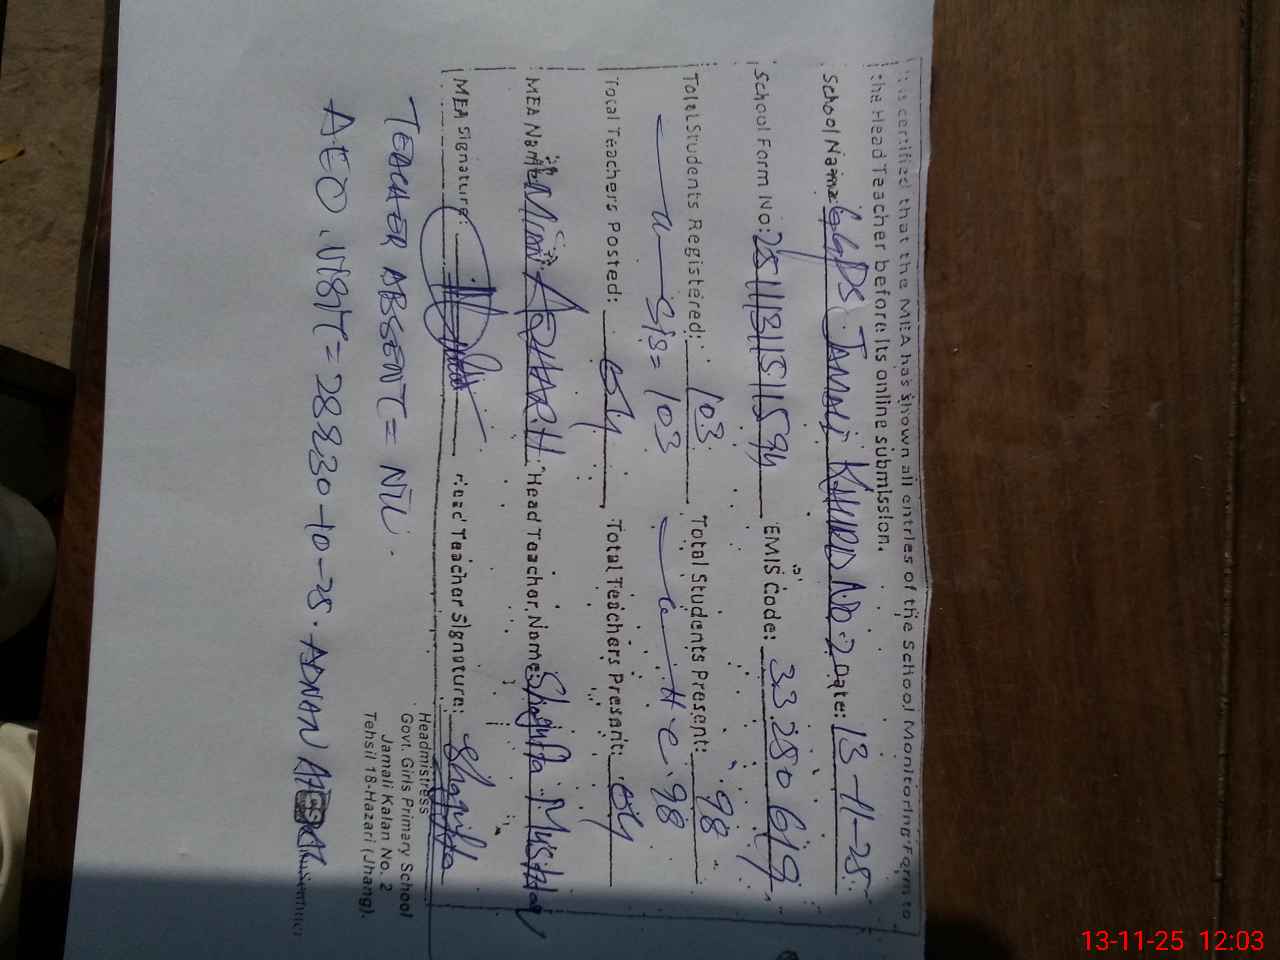 It is certified that the MEA has shown all entries of the School Monitoring Form to
the Head Teacher before its online submission.
School Name: GGPS JAMALI KHURD NO.2 Date: 13-11-25
School Form No: EMIS Code: 33280619
Total Students Registered: 103 Total Students Present: 98
SIS = 103 98
Total Teachers Posted: 04 Total Teachers Present: 04
MEA Name: AZHAR H. Head Teacher Name: Shagufta
MEA Signature: Head Teacher Signature: Shagufta
Headmistress
Govt. Girls Primary School
Jamali Kalan No. 2
Tehsil 18-Hazari (Jhang).
TEACHER ABSENT = NIL.
AEO. VISIT = 30-10-25. ADNAN
13-11-25 12:03